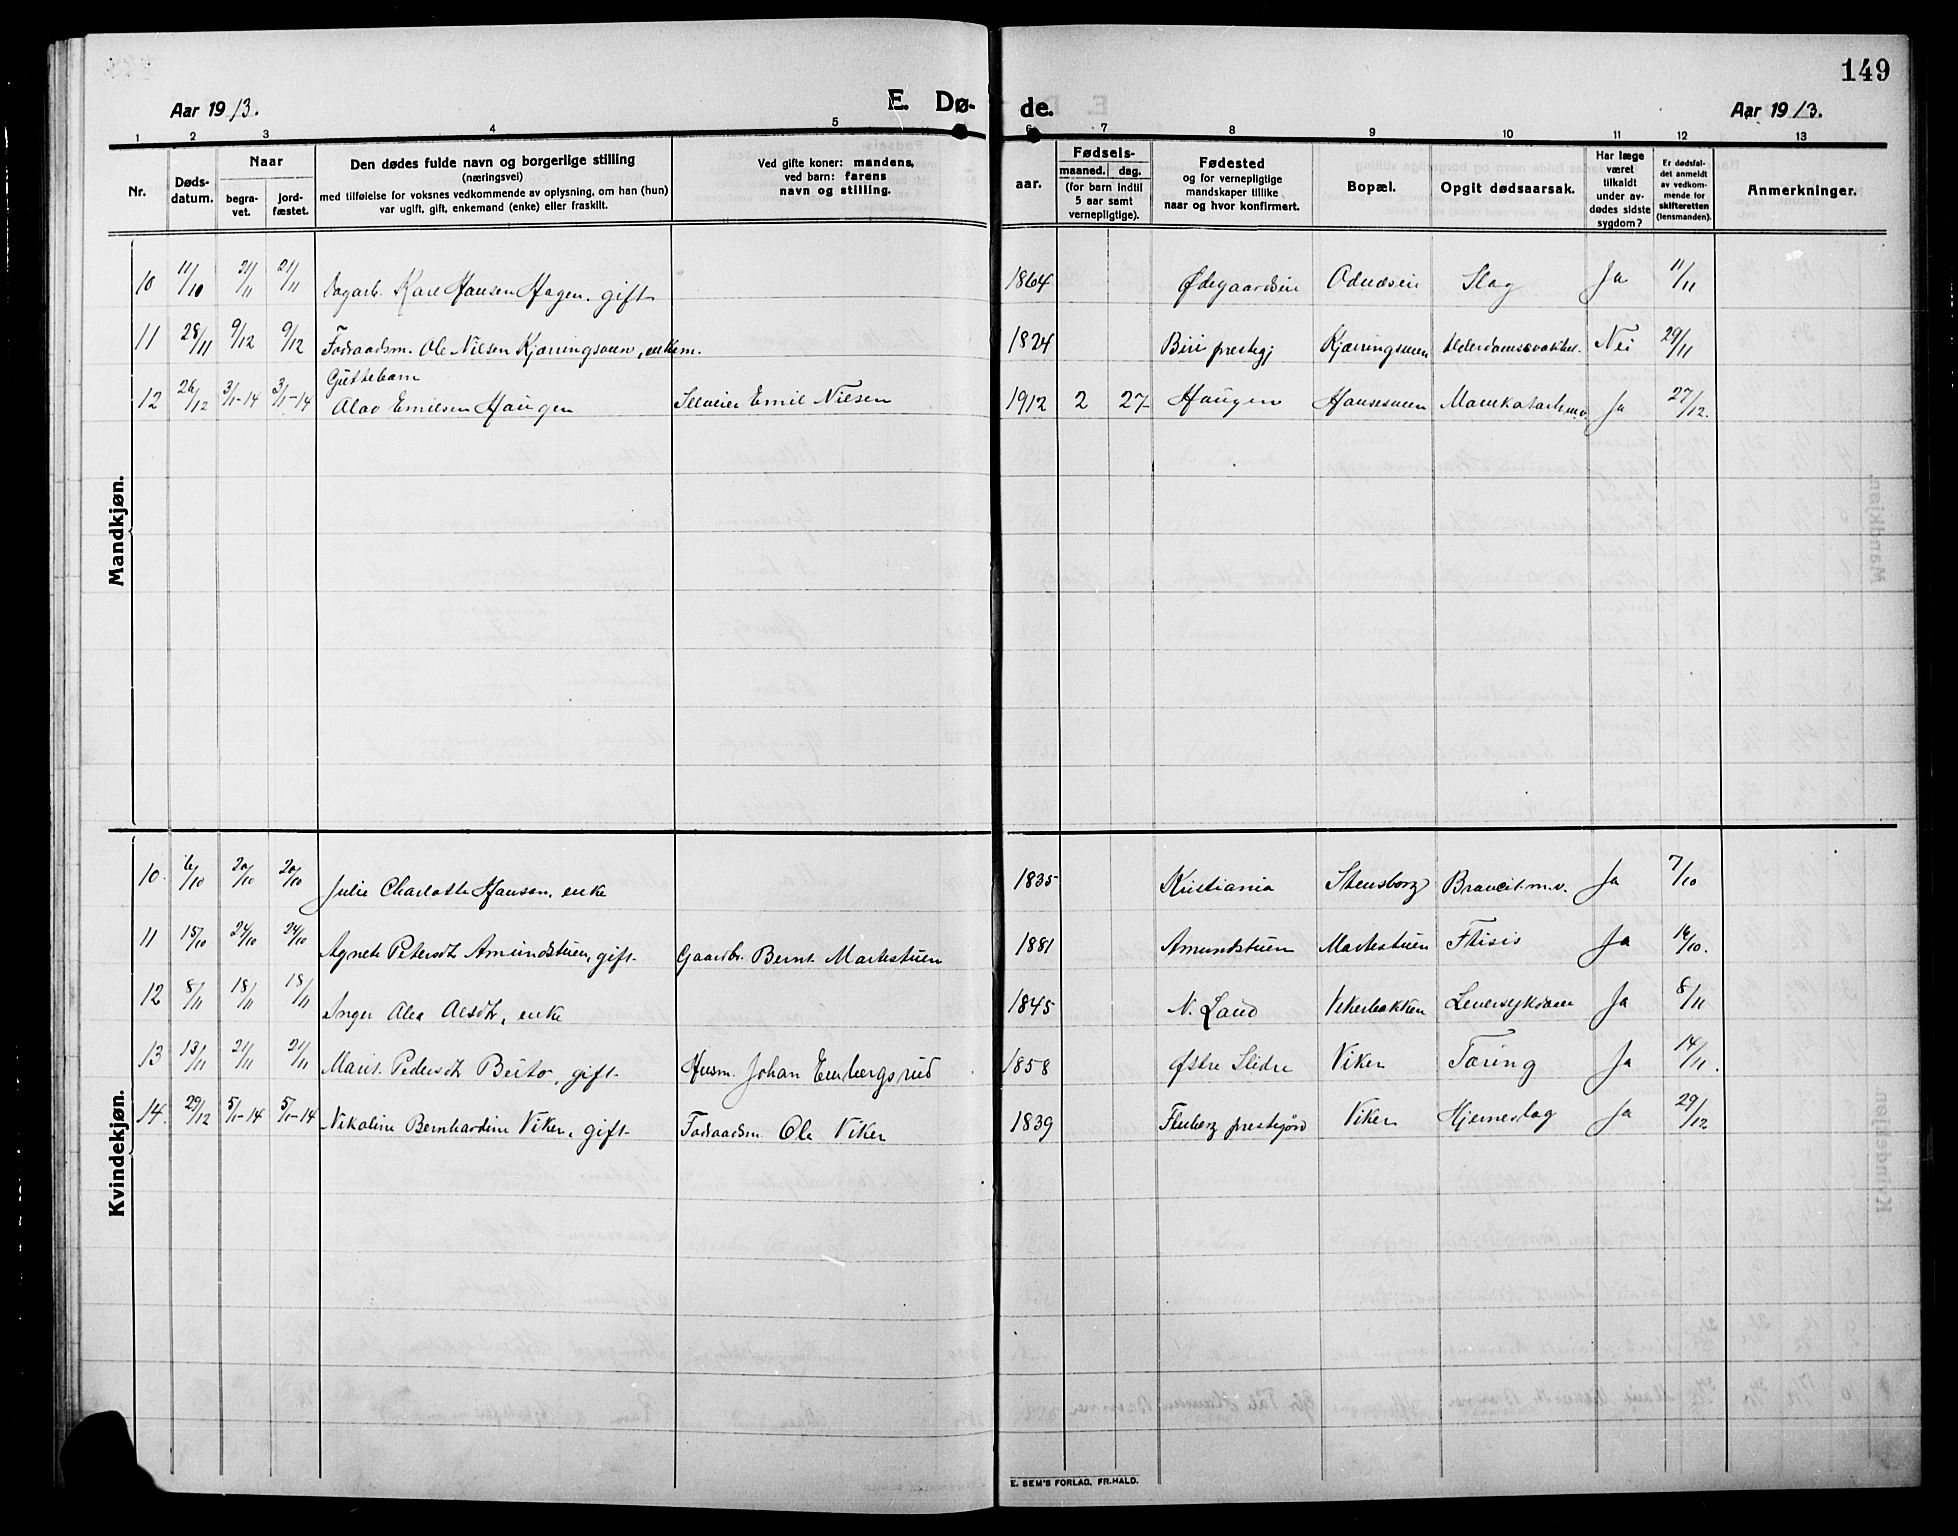 149
Aar 1913. E. Dø- de. Aar 1913.
1 2 3 4 5 6 7 8 9 10 11 12 13
Nr.
Døds-
datum.
Naar
begra-
vet.
jord-
fæstet.
Den dødes fulde navn og borgerlige stilling
(næringsvei)
med tilføielse for voksnes vedkommende av oplysning, om han (hun)
var ugift, gift, enkemand (enke) eller fraskilt.
Ved gifte koner: mandens,
ved barn: farens
navn og stilling.
Fødsels-
aar.
maaned. dag.
(for barn indtil
5 aar samt
vernepligtige).
Fødested
og for vernepligtige
mandskaper tillike
naar og hvor konfirmert.
Bopæl.
Opgit dødsaarsak.
Har læge
været
tilkaldt
under av-
dødes sidste
sygdom?
Er dødsfal-
det anmeldt
av vedkom-
mende for
skifteretten
(lensmanden).
Anmerkninger.
Mandkjøn.
10 11/10 21/11 21/11 Dagarb. Karl Hansen Hagen, gift 1864 Ødegaardseie Odnæseie Slag Ja 11/11
11 28/11 9/12 9/12 Føderaadsm. Ole Nilsen Kjærringsveen, enkem. 1824 Biri prestegj Kjærringsveen Alderdomssvakhet Nei 29/11
Guttebarn
12 26/12 3/1-14 3/1-14 Olav Emilsen Haugen Selveier Emil Nilsen 1912 2 27 Haugen Hansesveen Mavekatarh m.v. Ja 27/12.
Kvindekjøn.
10. 6/10 20/10 20/10 Julie Charlotte Hansen, enke 1835 Kristiania Stensborg Broncit m.v. Ja 7/10
11 15/10 24/10 24/10 Agnete Petersdt Amundstuen, gift Gaardbr. Bernt Martestuen 1881 Amundstuen Martestuen Ftisis Ja 16/10.
12 8/11 18/11 18/11 Inger Alea Olsdt, enke 1845 N. Land Vikerbakken Leversykdom Ja 8/11
13 13/11 21/11 21/11 Marit Pedersdt Beito, gift Husm. Johan Embergsrud 1858 Østre Slidre Viker Tæring Ja 14/11.
14. 29/12 5/1-14 5/1-14 Nikoline Bernhardine Viker, gift Føderaadsm. Ole Viker 1839 Fluberg prestegjæld Viker Hjerneslag Ja 29/12
E. SEM'S FORLAG, FR.HALD.